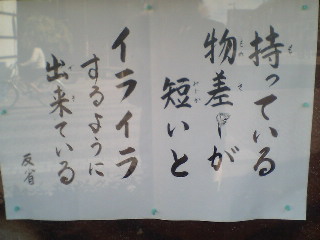 持っている
物差しが
短いと
イライラ
するように
出来ている
反省